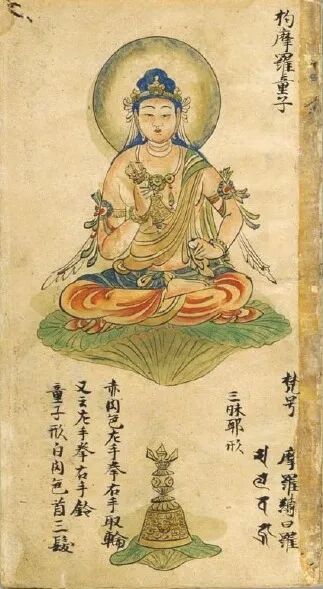 拘摩羅童子
梵号 摩羅縛日羅
三昧耶形
赤肉色左手拳右手取輪
又云左手拳右手鈴
童子形白肉色首三髻